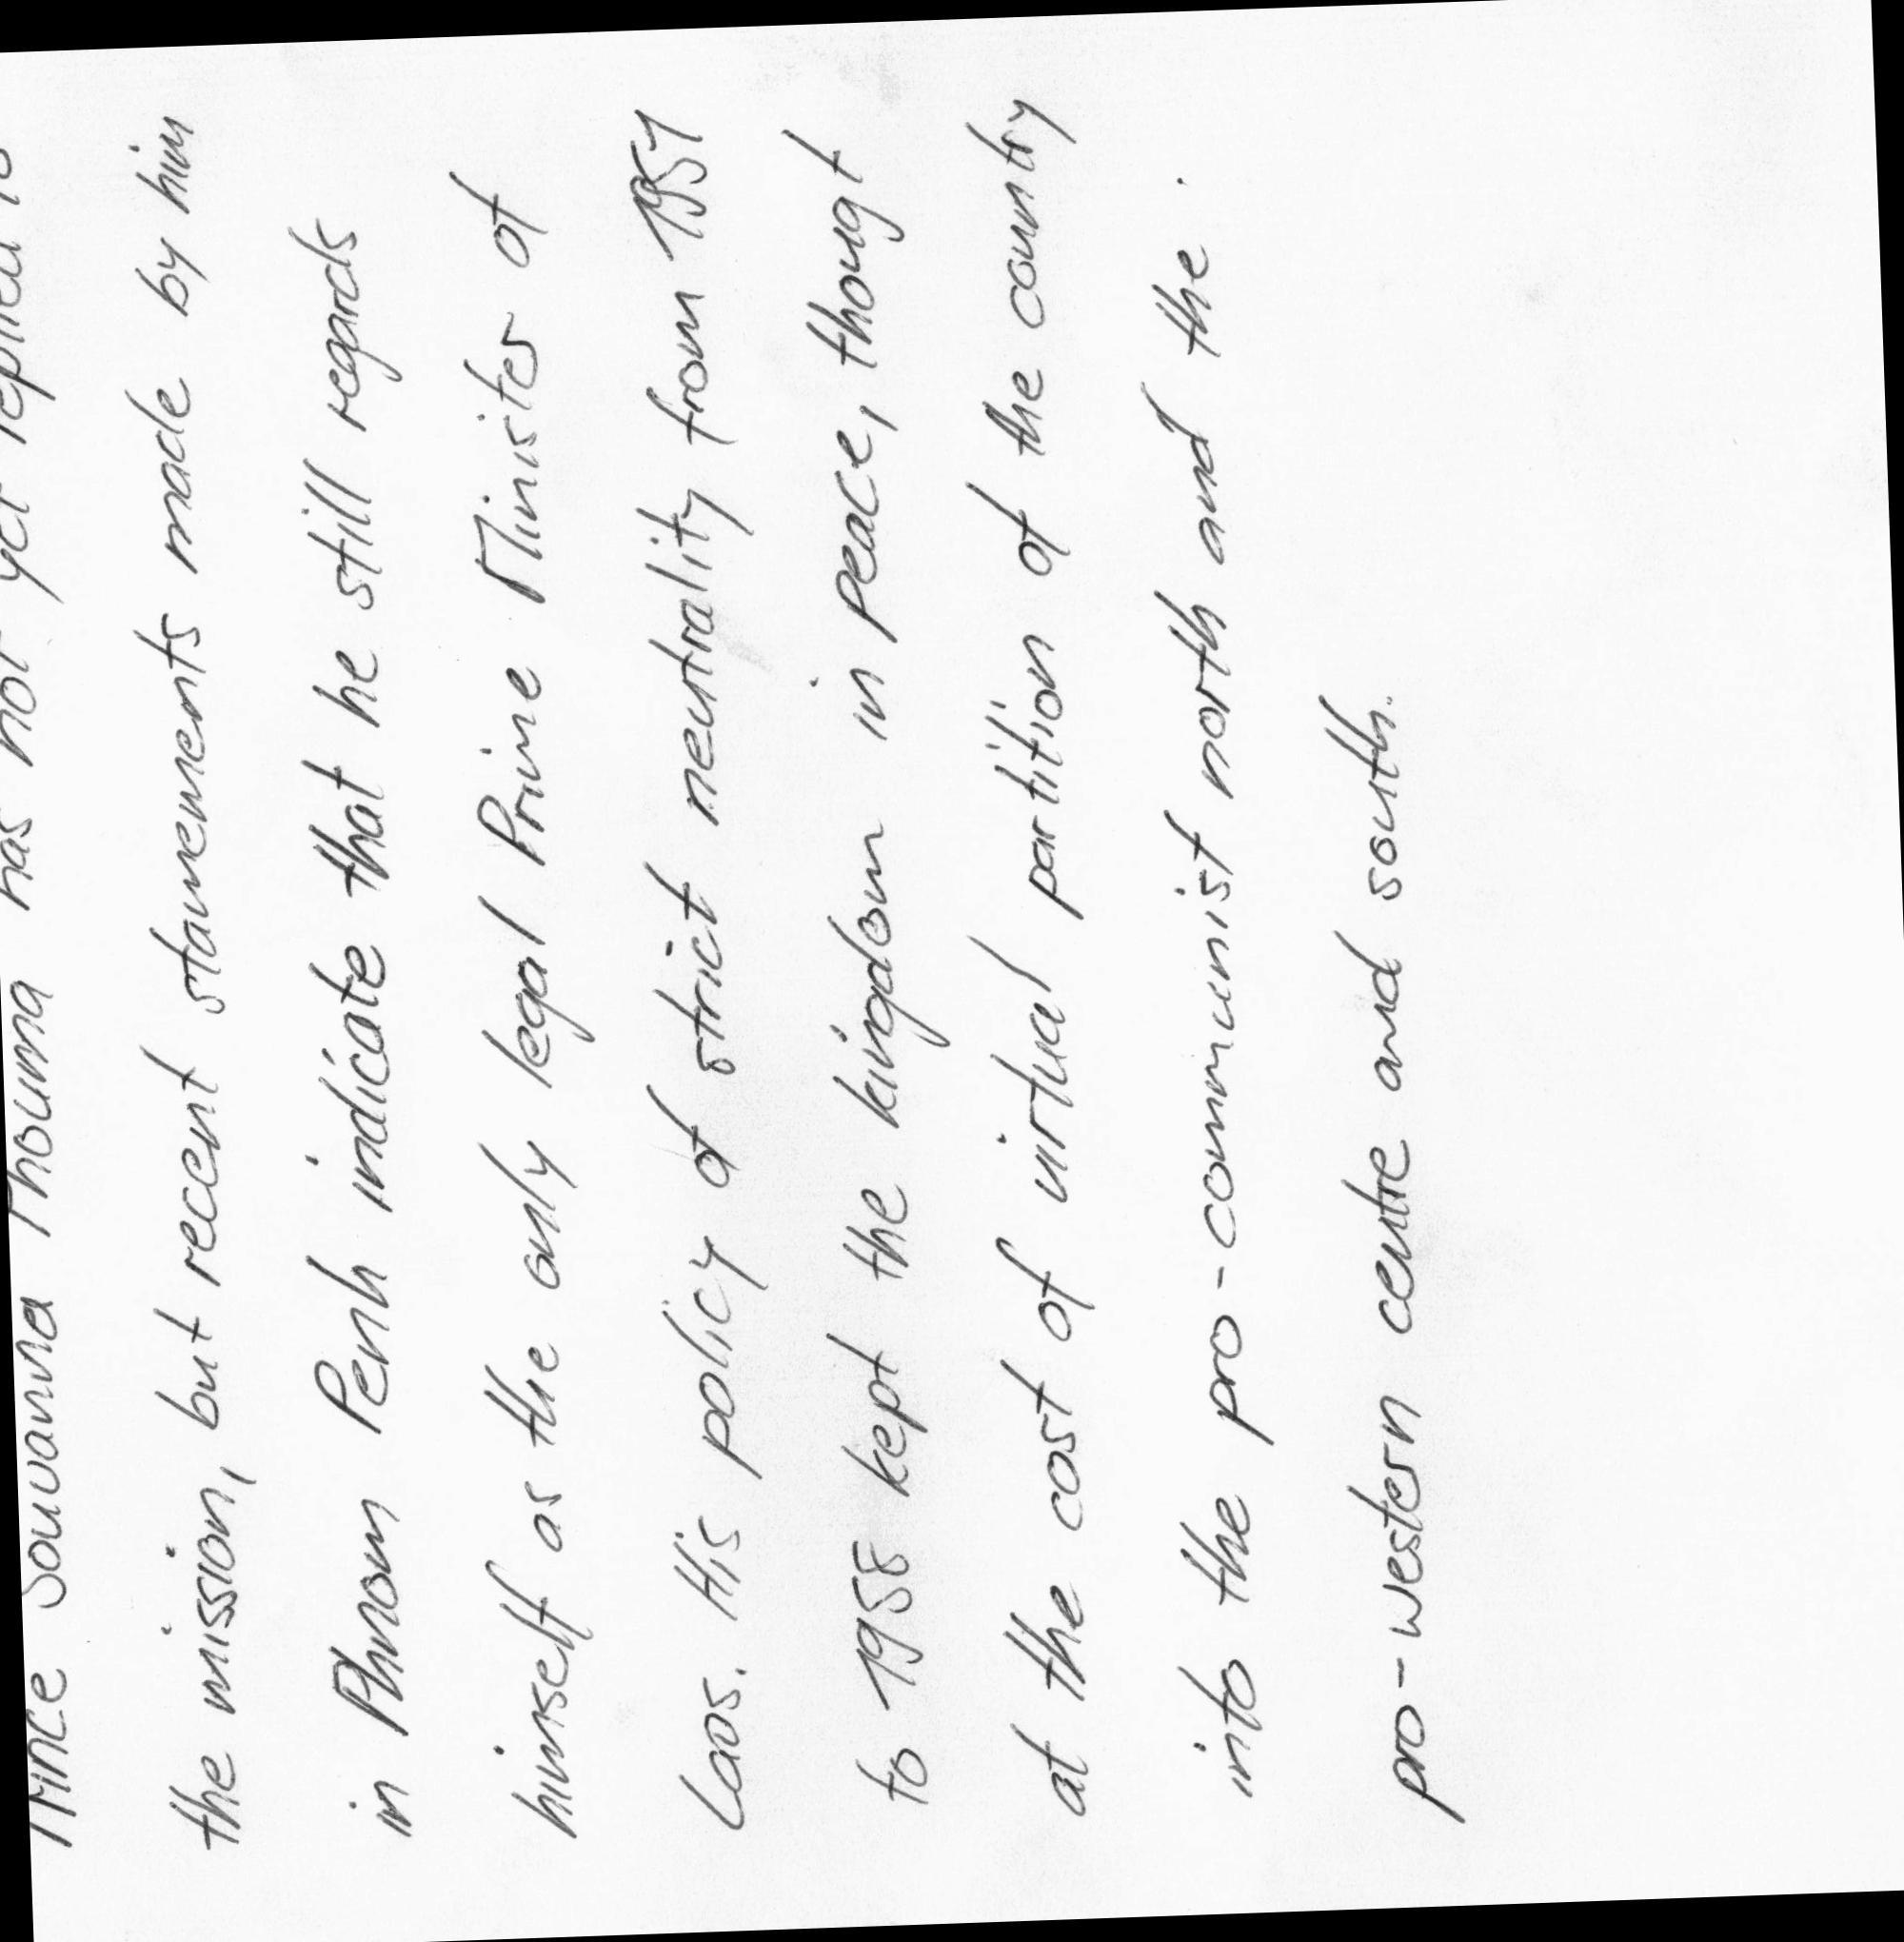 Prince Souvanna Phouma has not yet replied to
the mission, but recent stamements made by him
in Phnom Penh indicate that he still regards
himself as the only legal Prime Minister of
Laos. His policy of strict neutrality from 1951
to 1958 kept the kingdom in peace, thougt
at the cost of virtual partition of the country
into the pro-communist north and the.
pro-western centre and south.